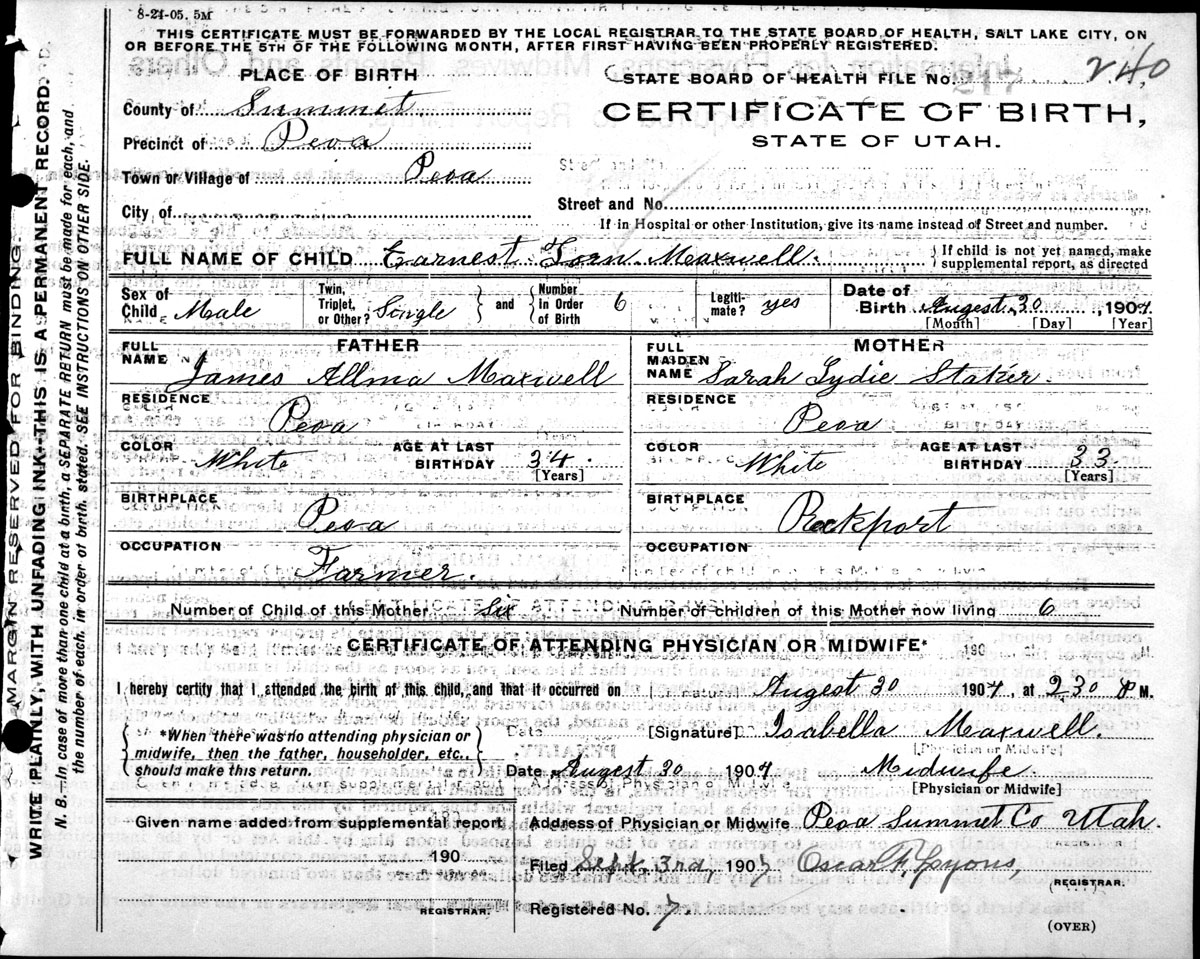 8-24-05. 5M
THIS CERTIFICATE MUST BE FORWARDED BY THE LOCAL REGISTRAR TO THE STATE BOARD OF HEALTH, SALT LAKE CITY, ON
OR BEFORE THE 5TH OF THE FOLLOWING MONTH, AFTER FIRST HAVING BEEN PROPERLY REGISTERED.
PLACE OF BIRTH
County of Summit
Precinct of Peoa
Town or Village of Peoa
City of
STATE BOARD OF HEALTH FILE No. 240
CERTIFICATE OF BIRTH,
STATE OF UTAH.
Street and No.
If in Hospital or other Institution, give its name instead of Street and number.
FULL NAME OF CHILD Earnest Forn Maxwell. If child is not yet named, make
supplemental report, as directed
Sex of Child Male
Twin, Triplet, or Other? Single and Number in Order of Birth 6
Legiti- mate? yes
Date of Birth Augest 30, 1907
[Month] [Day] [Year]
FATHER
FULL NAME James Allma Maxwell
RESIDENCE Peoa
COLOR White AGE AT LAST BIRTHDAY 34.
[Years]
BIRTHPLACE Peoa
OCCUPATION Farmer.
MOTHER
FULL MAIDEN NAME Sarah Lydie Staker
RESIDENCE Peoa
COLOR White AGE AT LAST BIRTHDAY 33
[Years]
BIRTHPLACE Rockport
OCCUPATION
Number of Child of this Mother Six Number of children of this Mother now living 6
CERTIFICATE OF ATTENDING PHYSICIAN OR MIDWIFE*
I hereby certify that I attended the birth of this child, and that it occurred on Augest 30 1907, at 230 P M.
*When there was no attending physician or
midwife, then the father, householder, etc.,
should make this return.
[Signature] Isabella Maxwell.
Date Augest 30 1907 Midwife
[Physician or Midwife]
Given name added from supplemental report
190
REGISTRAR.
Address of Physician or Midwife Peoa Summet Co Utah.
Filed Sept. 3rd, 1907 Oscar F. Lyons,
REGISTRAR.
Registered No. 7.
(OVER)
MARGIN RESERVED FOR BINDING.
WRITE PLAINLY, WITH UNFADING INK—THIS IS A PERMANENT RECORD.
N. B.—In case of more than one child at a birth, a SEPARATE RETURN must be made for each, and
the number of each, in order of birth, stated. SEE INSTRUCTIONS ON OTHER SIDE.